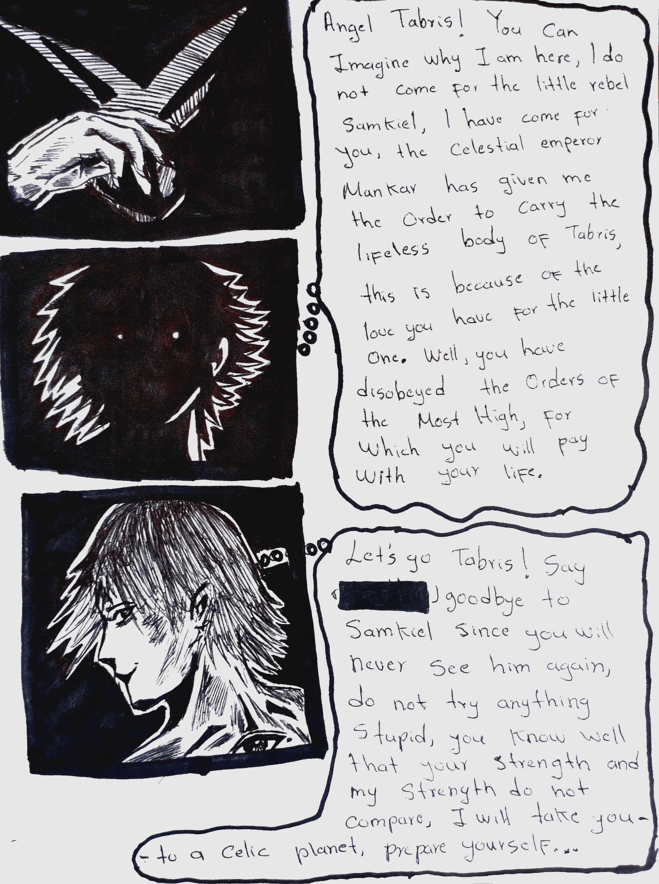 Angel Tabris! You Can
Imagine why I am here, I do
not come for the little rebel
Samkiel, I have come for
you, the Celestial emperor
Mankar has given me
the Order to carry the
lifeless body of Tabris,
this is because of the
love you have for the little
One. Well, you have
disobeyed the Orders of
the Most High, for
which you will pay
with your life.
Let's go Tabris! Say
goodbye to
Samkiel since you will
never see him again,
do not try anything
Stupid, you know well
that your strength and
my strength do not
compare, I will take you-
-to a Celic planet, prepare yourself...